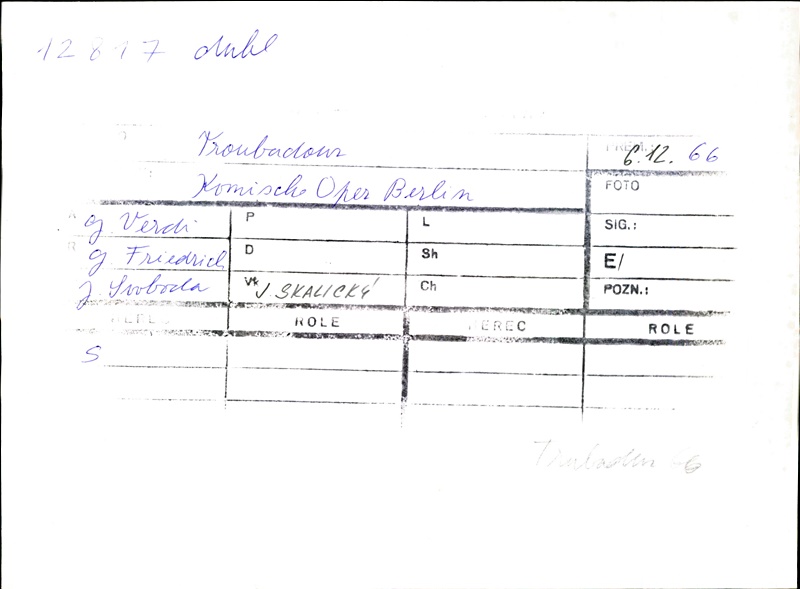 12817 dubl
Troubadour PREM.: 6.12. 66
Komische Oper Berlin FOTO
g Verdi P L SIG.:
g Friedrich D Sh E/
J. Svoboda Vk J SKALICKÝ Ch POZN.:
HEREC ROLE HEREC ROLE
S
66